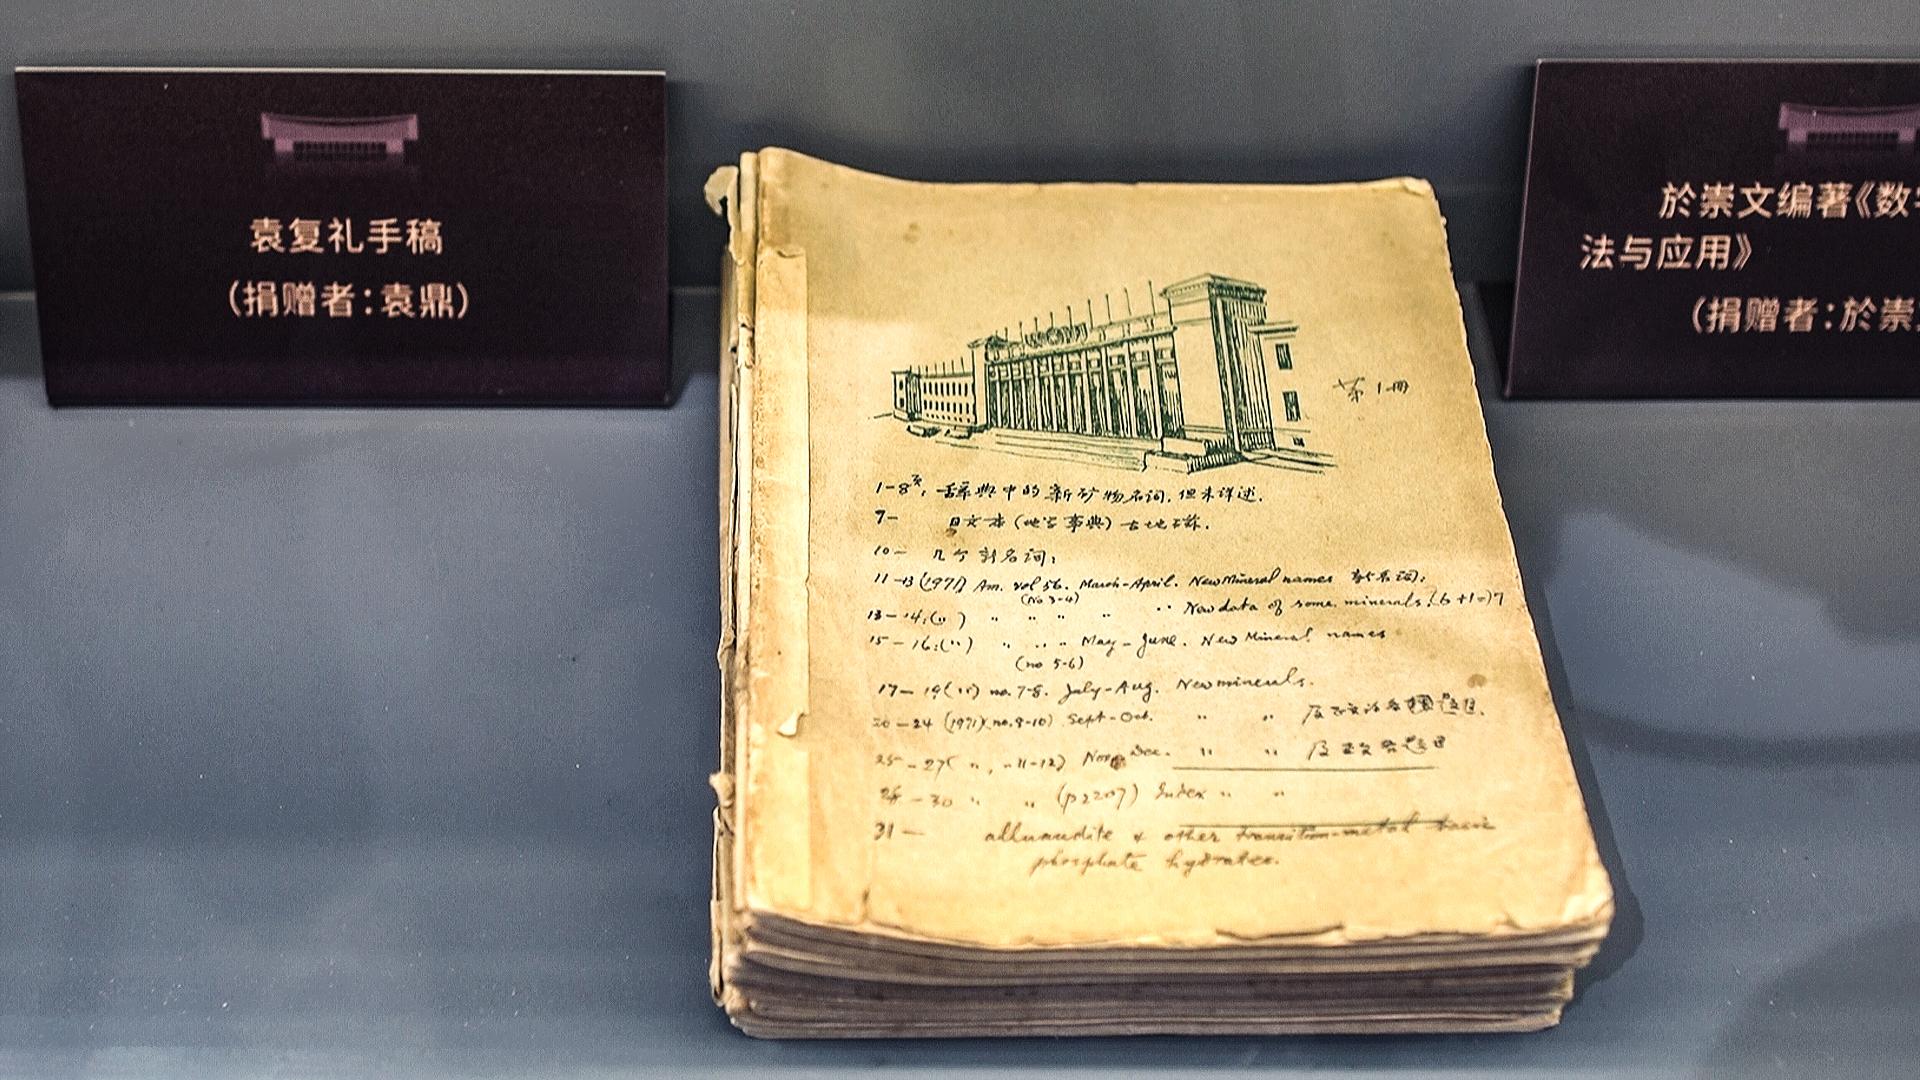 袁复礼手稿
(捐赠者:袁鼎)
於崇文编著《数
法与应用》
(捐赠者:於崇
第1册
1-8页: 辞典中的新矿物名词,但未详述.
7- 日文本(地学事典)古地磁.
10- 几个新名词:
11-13 (1971) Am. vol 56. March-April. New Mineral names 新名词:
(No 3-4)
13-14:(〃) 〃 〃 〃 〃 〃 New data of some minerals.(6+1=)7
15-16:(〃) 〃 〃 〃 May-June. New Mineral names
(no 5-6)
17-19(〃) no. 7-8. July-Aug. New minerals.
20-24 (1971)(no. 9-10) Sept-Oct. 〃 〃 及
25-27( 〃, 〃 11-12) Nov-Dec. 〃 〃 及
28-30 〃 〃 (p2207) Index 〃 〃
31- alluaudite & other transition-metal basic
phosphate hydrates.